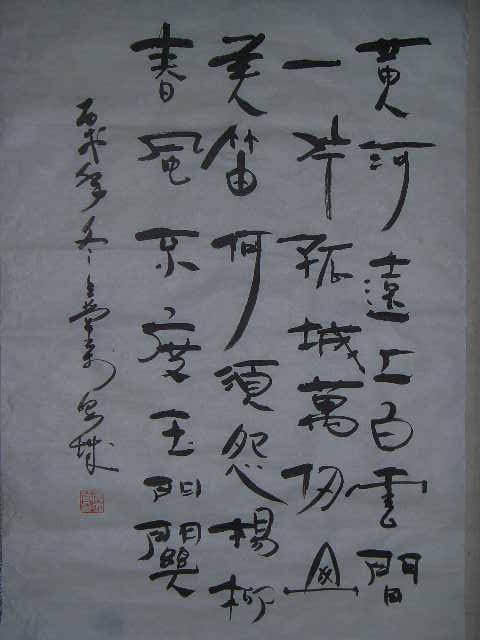 黄河遠上白雲間
一片孤城萬仞山
羌笛何須怨楊柳
春風不度玉門關
丙戌年冬